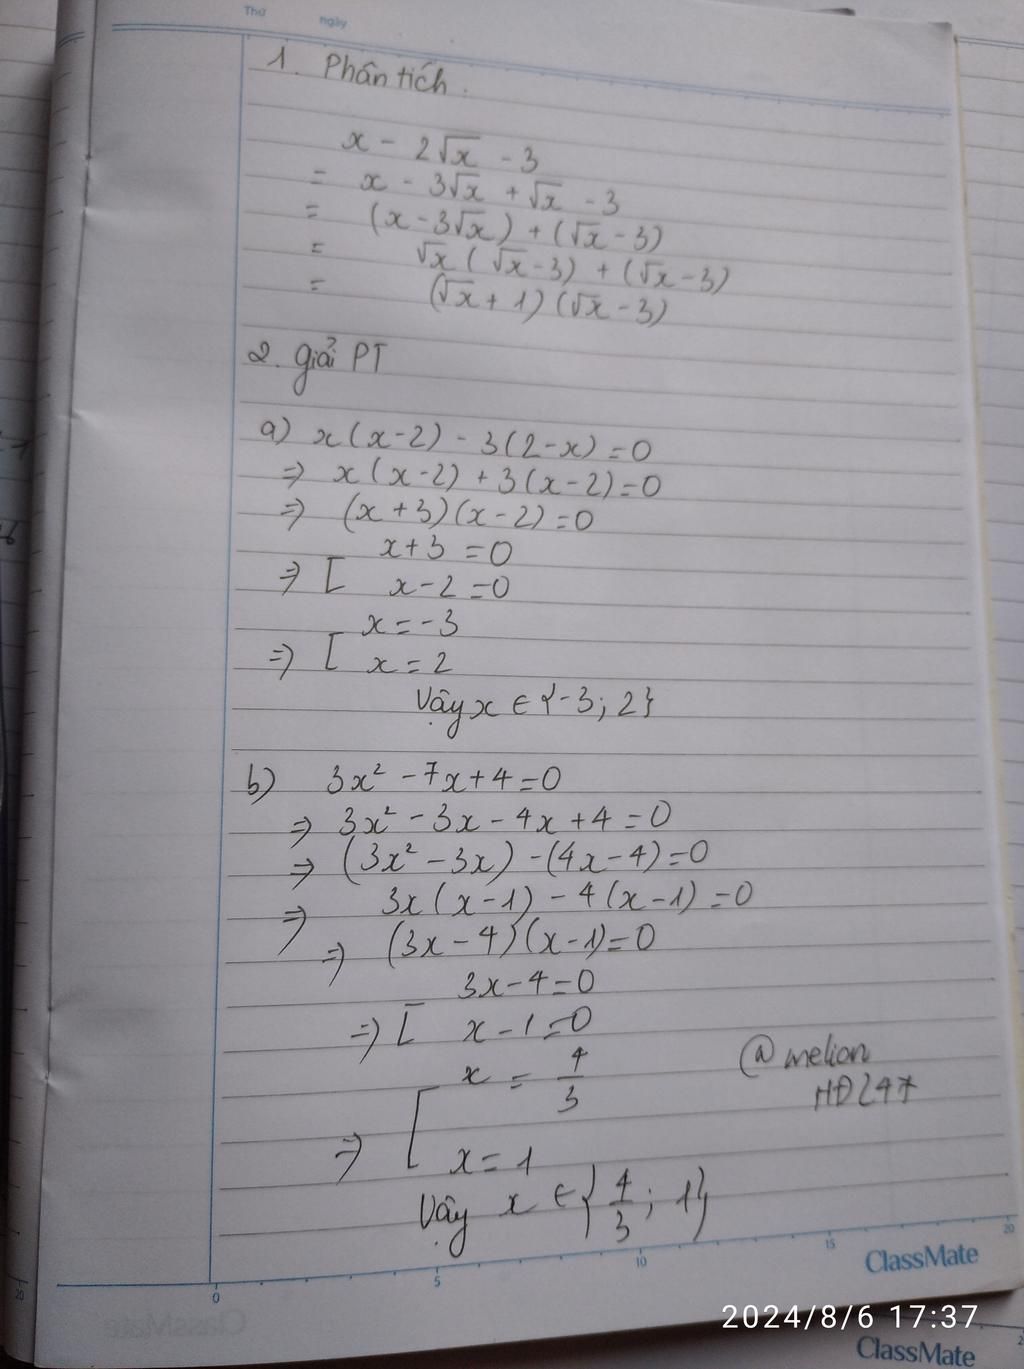 Thứ ngày
1. Phân tích.
x - 2√x - 3
= x - 3√x + √x - 3
= (x - 3√x) + (√x - 3)
= √x (√x - 3) + (√x - 3)
= (√x + 1) (√x - 3)
2. giải PT
a) x(x-2) - 3(2-x) = 0
=> x(x-2) + 3(x-2) = 0
=> (x+3)(x-2) = 0
x+3 = 0
=> [ x-2 = 0
x = -3
=> [ x = 2
Vậy x ∈ {-3; 2}
b) 3x² - 7x + 4 = 0
=> 3x² - 3x - 4x + 4 = 0
=> (3x² - 3x) - (4x - 4) = 0
=> 3x(x-1) - 4(x-1) = 0
=> (3x-4)(x-1) = 0
3x-4 = 0
=> [ x-1 = 0
x = 4/3
=> [ x = 1
@melion
HĐ247
Vậy x ∈ {4/3; 1}
0 5 10 15 20
ClassMate
2024/8/6 17:37
ClassMate